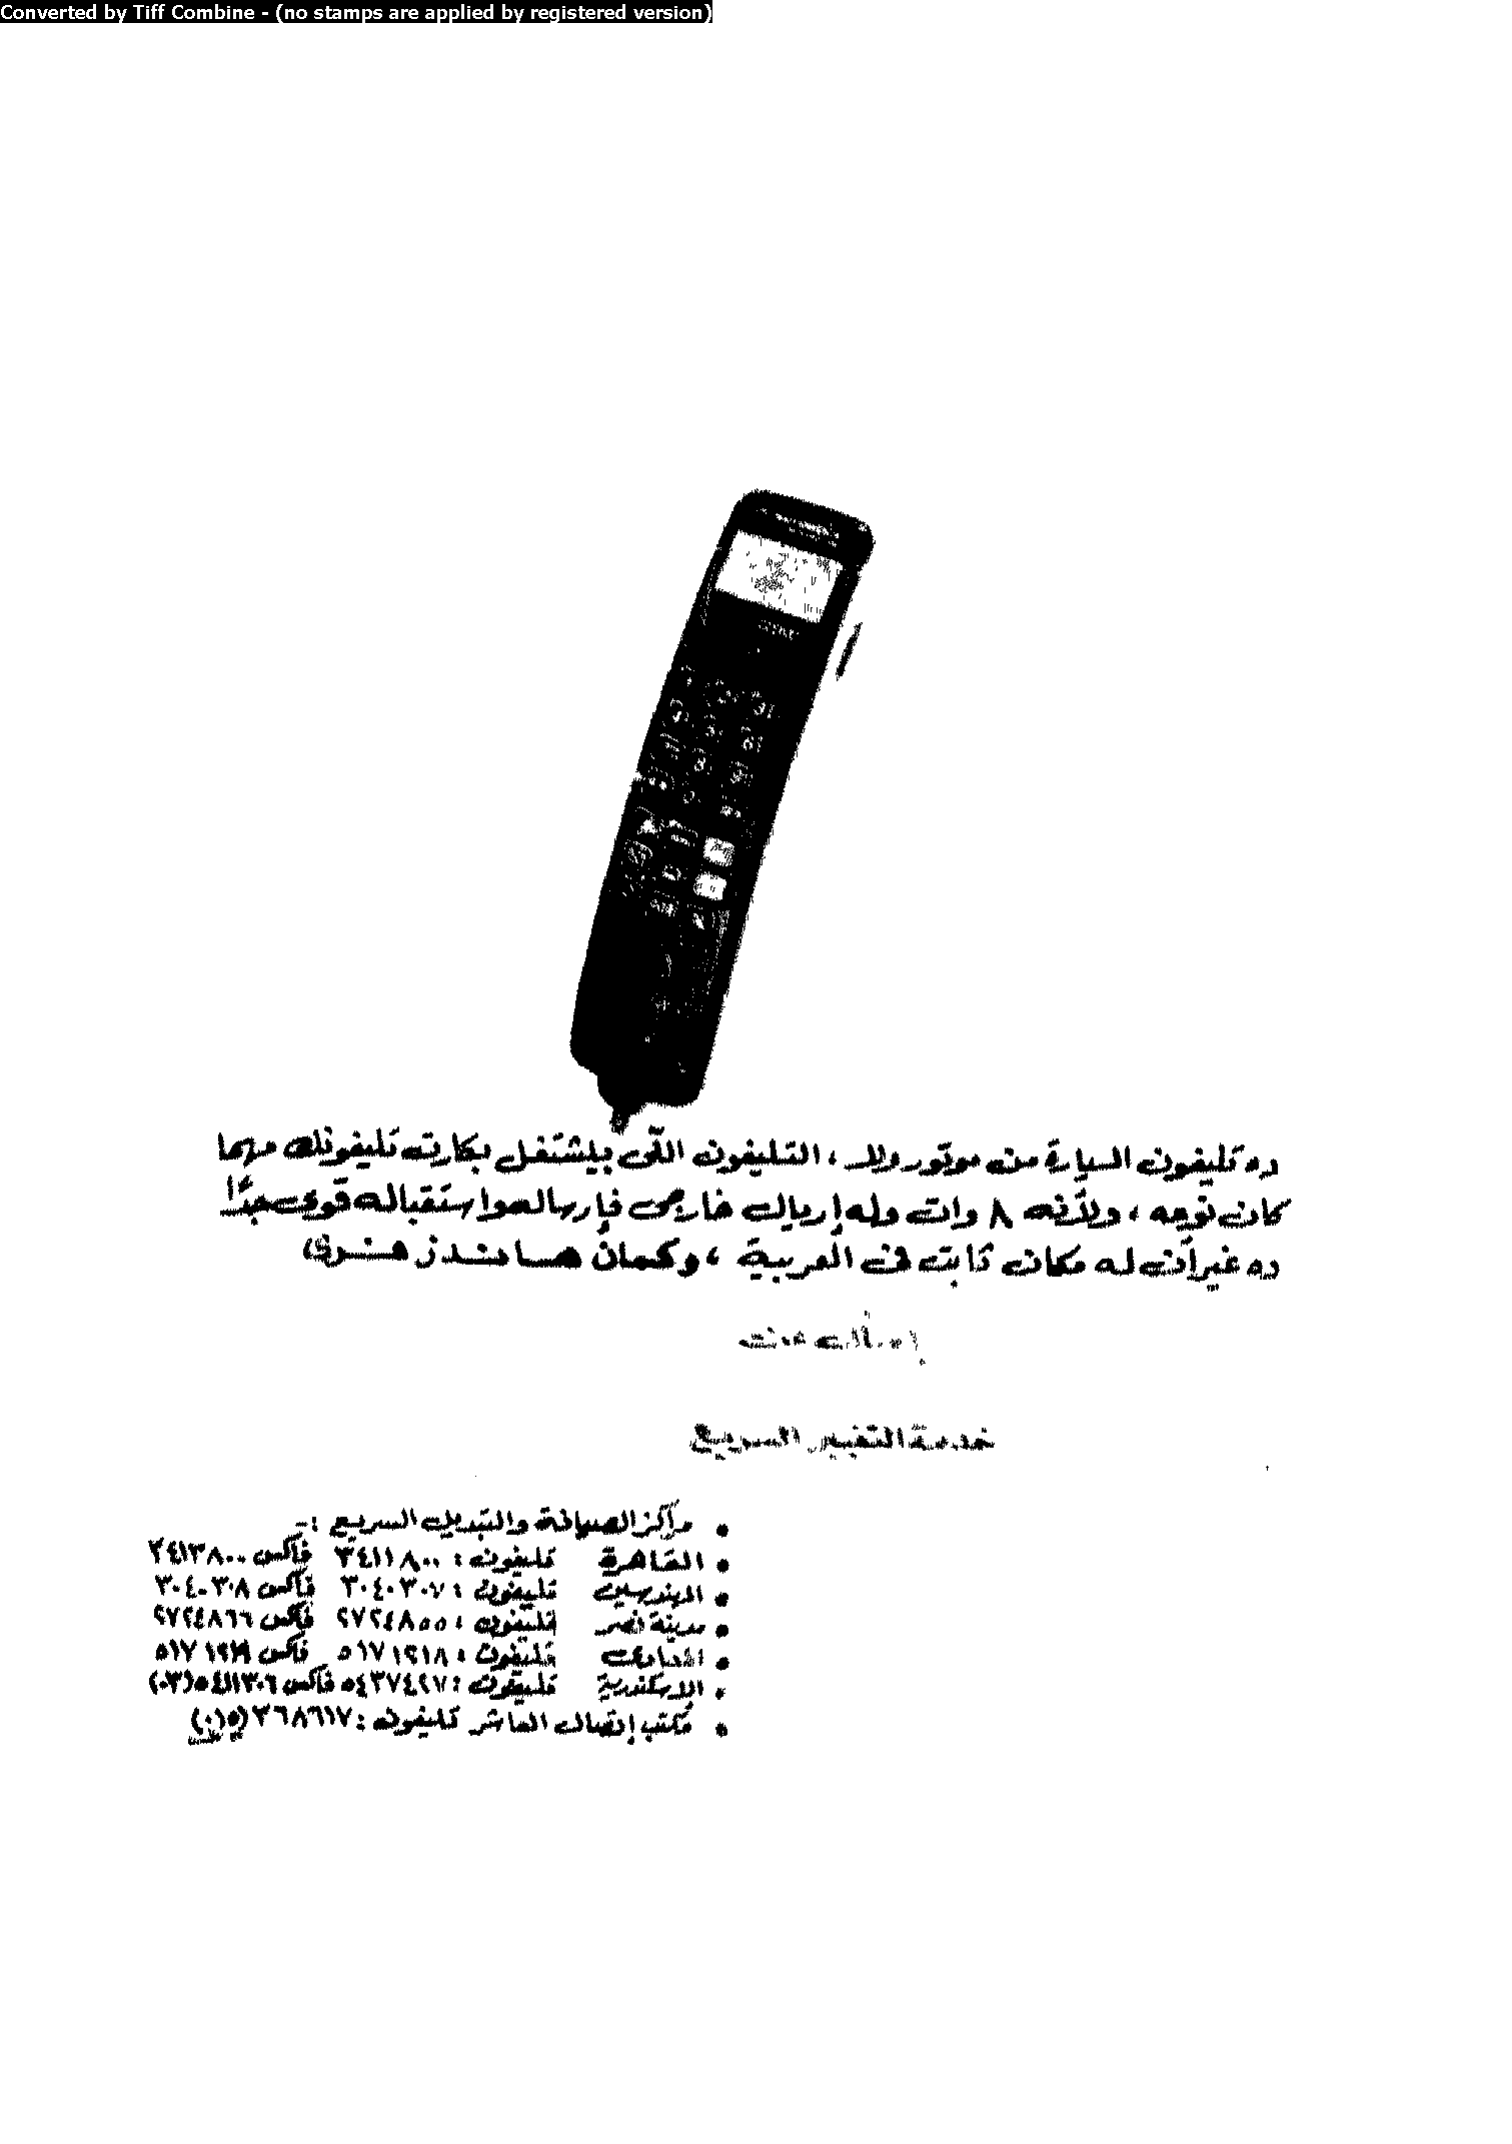 Converted by Tiff Combine - (no stamps are applied by registered version)
ده تليفون السيارة من موتورولا ، التليفون اللّى بيشتغل بكارت تليفونك مهما
كان نوعه ، ولأنه ٨ وات وله إريال خارجى فإرساله واستقباله قوى جدًا
ده غير أن له مكان ثابت فى العربية ، وكمان هــا نــدز فــرى
إسأل عن
خدمة التغيير السريع
• مراكز الصيانة والتبديل السريع :-
• القاهرة تليفون : ٣٤١١٨٠٠ فاكس ٣٤١٣٨٠٠
• المهندسين تليفون : ٣٠٤٠٣٠٧ فاكس ٣٠٤٠٣٠٨
• مدينة نصر تليفون : ٢٧٢٤٨٥٥ فاكس ٢٧٢٤٨٦٦
• المعادى تليفون : ٥١٧١٢١٨ فاكس
• الاسكندرية تليفون : ٥٤٣٧٤٢٧ فاكس ٥٤١١٣٠٦ (٠٣)
• مكتب إتصال العاشر تليفون : ٣٦٨٦١٧ (٠١٥)